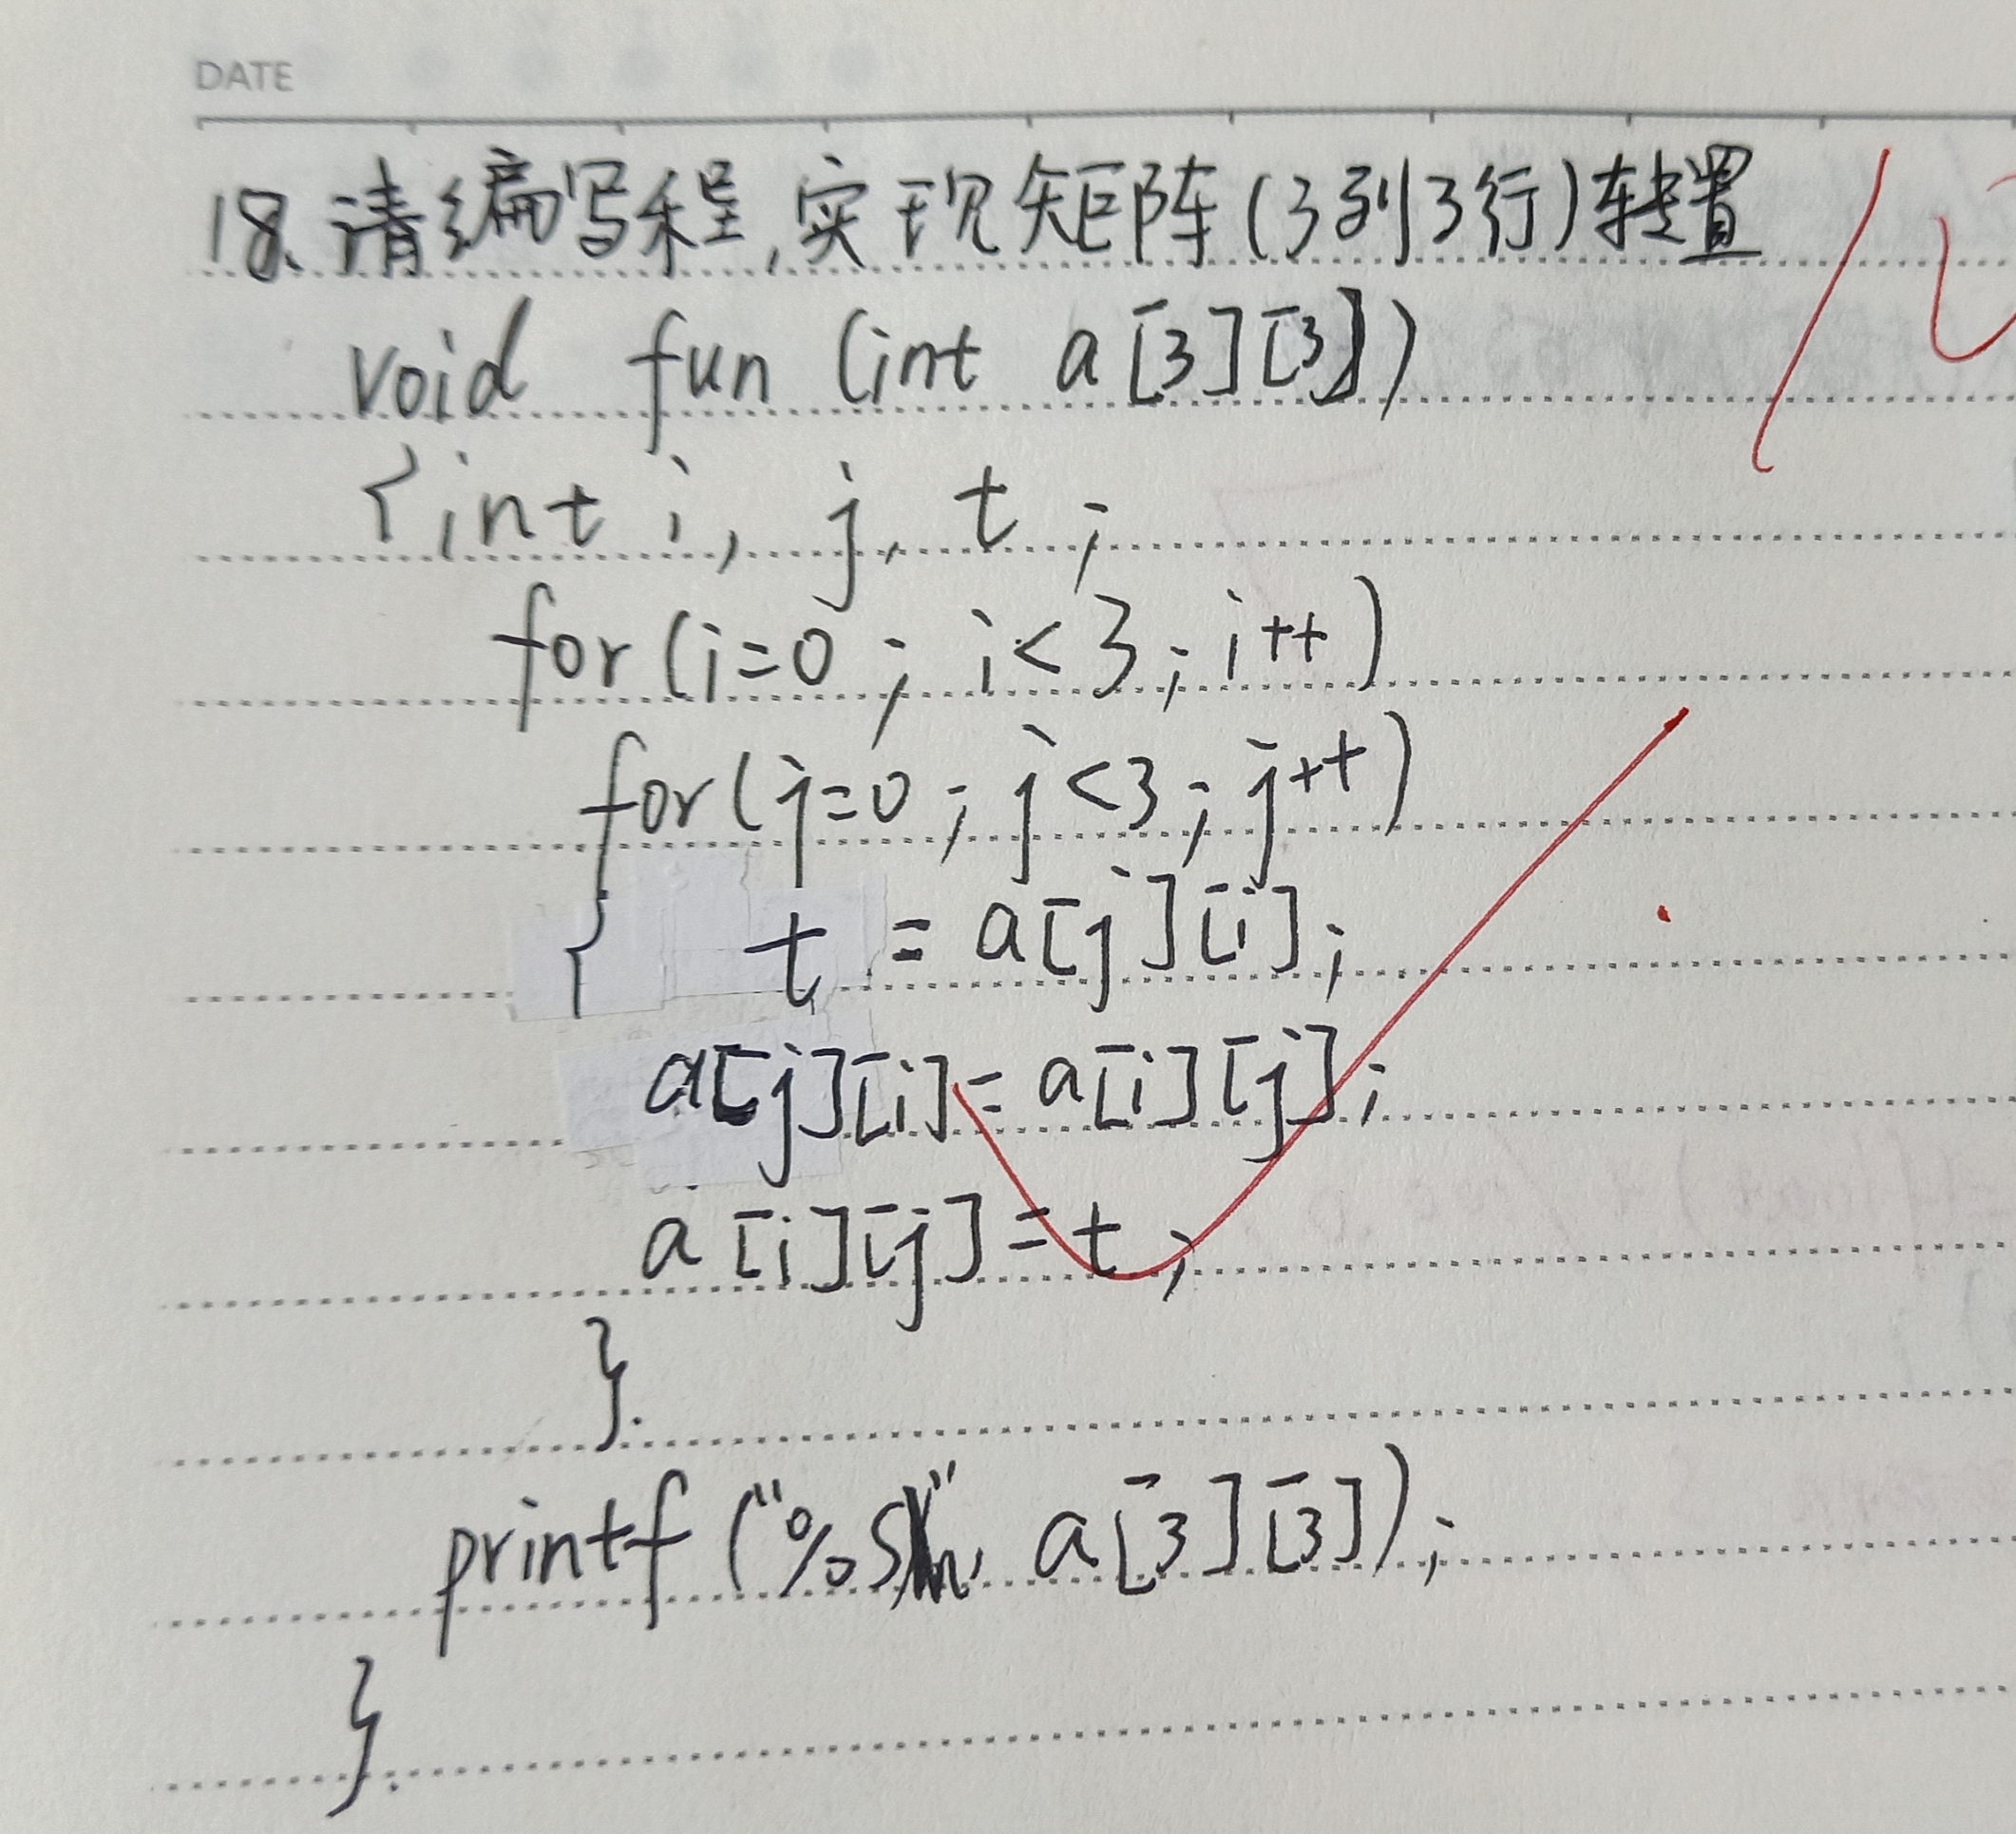 DATE
18.请编写程,实现矩阵(3列3行)转置
void fun (int a[3][3])
{int i, j, t ;
for(i=0 ; i<3 ; i++)
for(j=0 ; j<3 ; j++)
{ t = a[j][i];
a[j][i]= a[i][j];
a[i][j]=t ;
}.
printf ("%s\n", a[3][3]);
}.